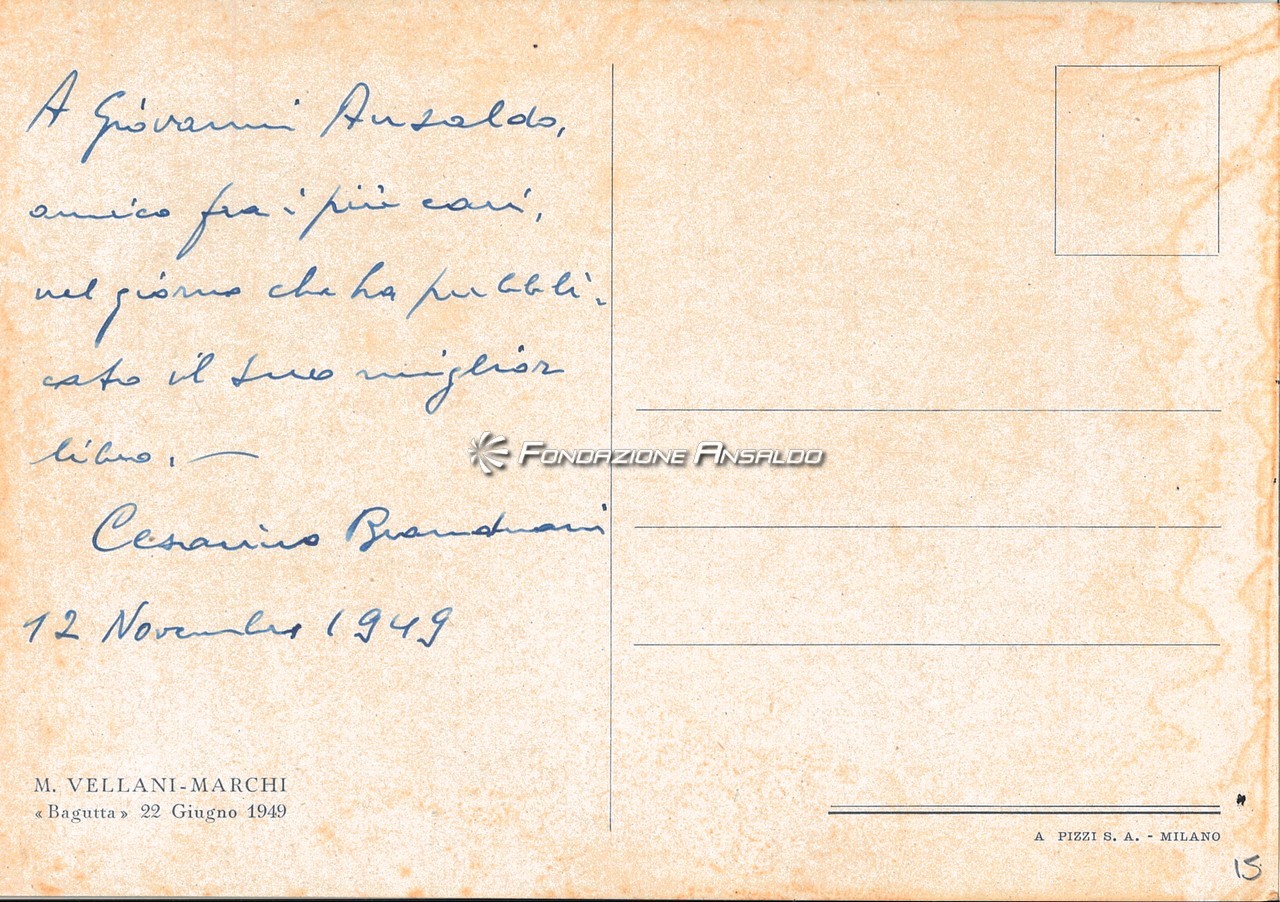 A Giovanni Ansaldo,
amico fra i più cari,
nel giorno che ha pubbli-
cato il suo miglior
libro. —
Cesarino Branduani
12 Novembre 1949
FONDAZIONE ANSALDO
M. VELLANI-MARCHI
«Bagutta» 22 Giugno 1949
A PIZZI S. A. - MILANO
15